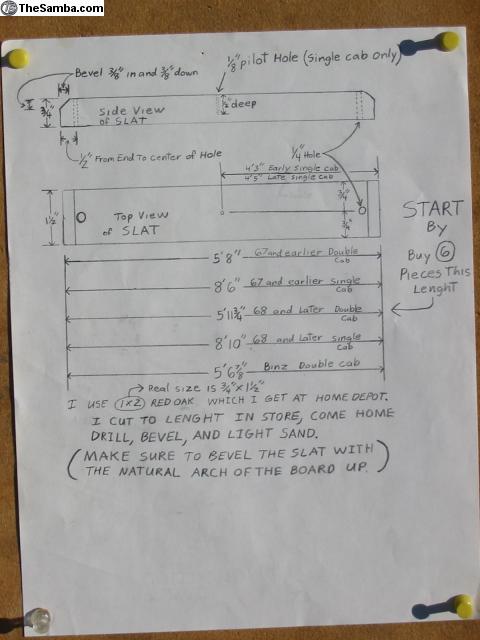 TheSamba.com
Bevel 3/8" in and 3/8" down
1/8" pilot Hole (Single cab only)
3/4"
Side View
of SLAT
1/2" deep
1/2" From End To center of Hole
1/4" Hole
4'3" Early Single cab
4'5" Late Single cab
1 1/2"
Top View
of SLAT
3/4"
3/4"
START
By
Buy 6
Pieces This
Lenght
5'8" 67 and earlier Double Cab
8'6" 67 and earlier Single Cab
5'11 3/4" 68 and Later Double Cab
8'10" 68 and Later single Cab
5'6 7/8" Binz Double cab
Real size is 3/4" x 1 1/2"
I USE 1x2 RED OAK WHICH I GET AT HOME DEPOT.
I CUT TO LENGHT IN STORE, COME HOME
DRILL, BEVEL, AND LIGHT SAND.
(MAKE SURE TO BEVEL THE SLAT WITH
THE NATURAL ARCH OF THE BOARD UP.)